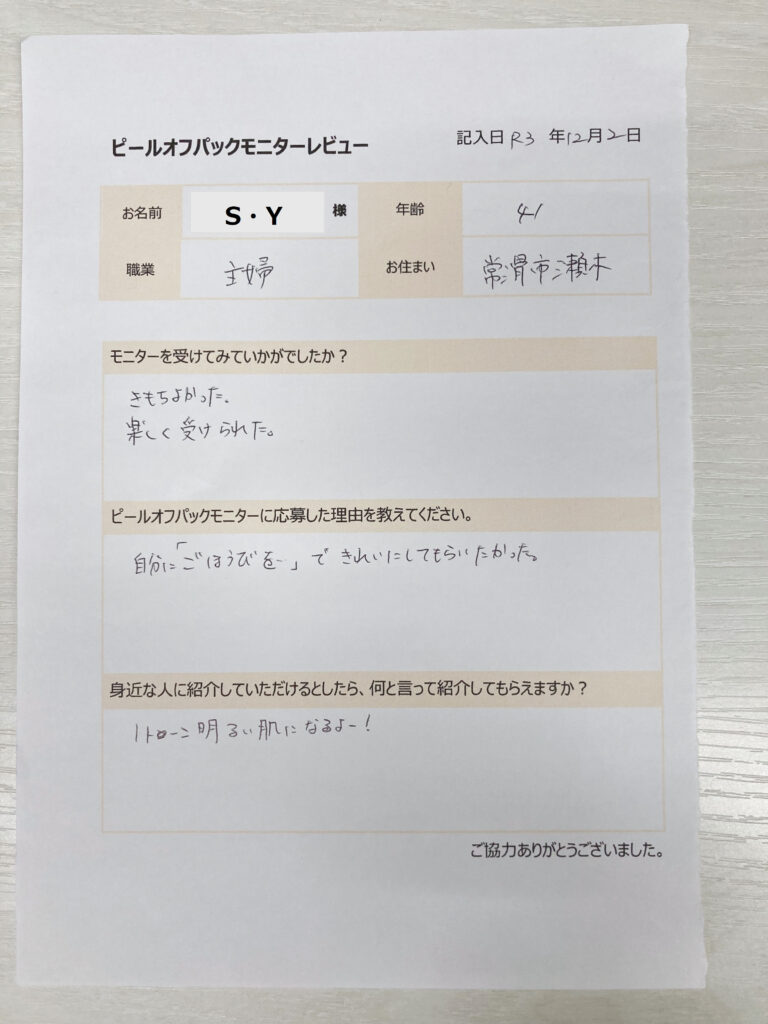 ピールオフパックモニターレビュー
記入日 R3 年12月2日
お名前 S・Y 様 年齢 41
職業 主婦 お住まい 常滑市瀬木
モニターを受けてみていかがでしたか？
きもちよかった。
楽しく受けられた。
ピールオフパックモニターに応募した理由を教えてください。
自分に「ごほうびを…」できれいにしてもらいたかった。
身近な人に紹介していただけるとしたら、何と言って紹介してもらえますか？
1トーン明るい肌になるよー！
ご協力ありがとうございました。